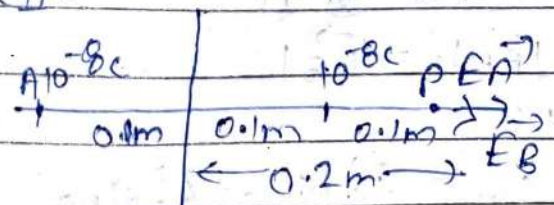 A 10⁻⁸c 10⁻⁸c P EA→
0.1m 0.1m 0.1m EB→
0.2m